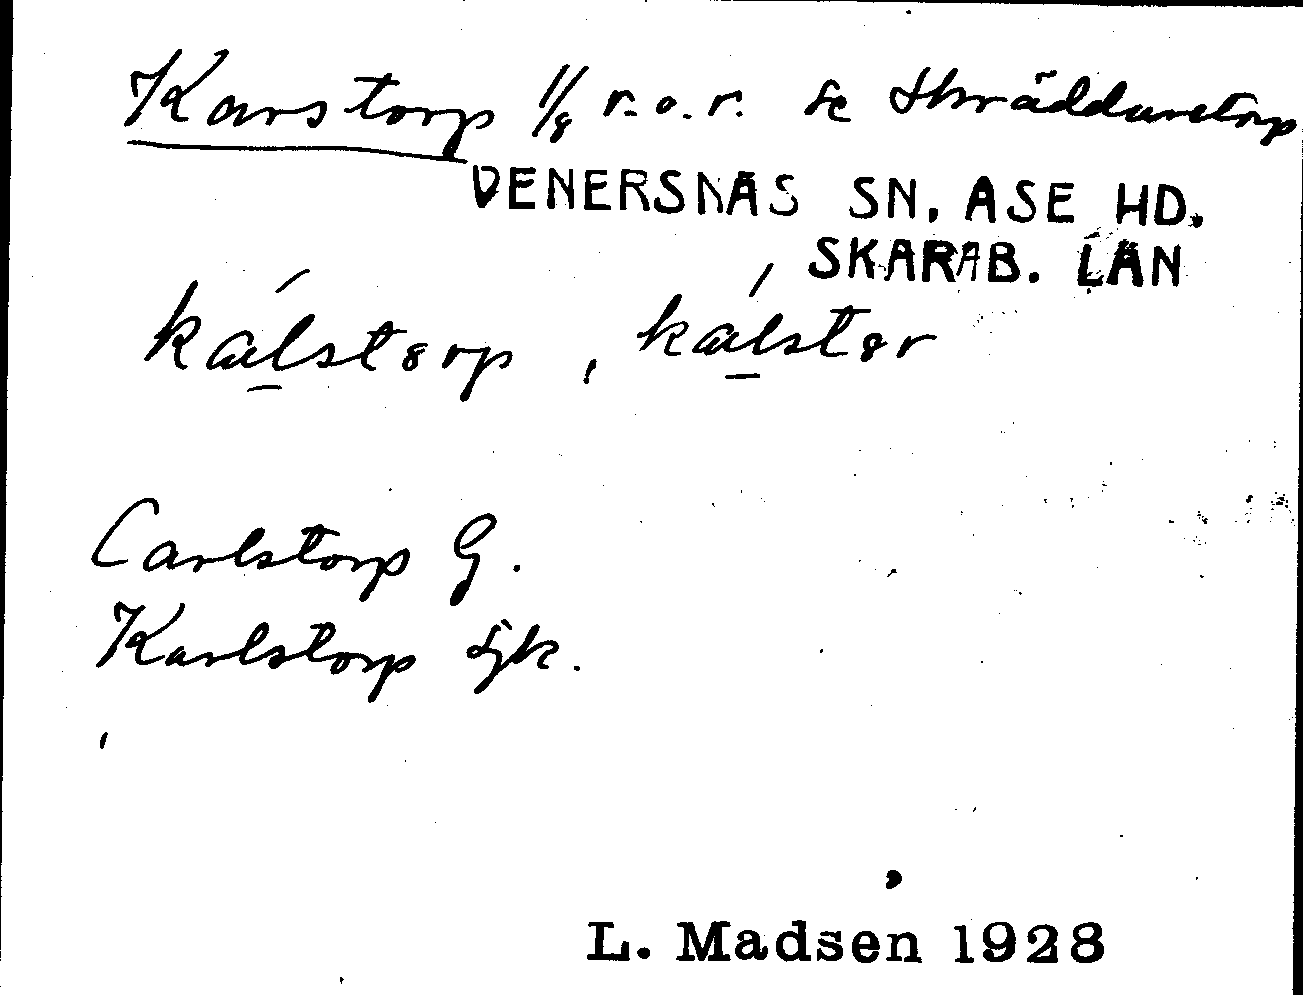 Karstorp 1/8 r.o.r. se Skräddaretorp
VENERSNÄS SN. ÅSE HD.
SKARAB. LÄN
kálstɵrp, kálstɵr
Carlstorp G.
Karlstorp Jjk.
L. Madsen 1928